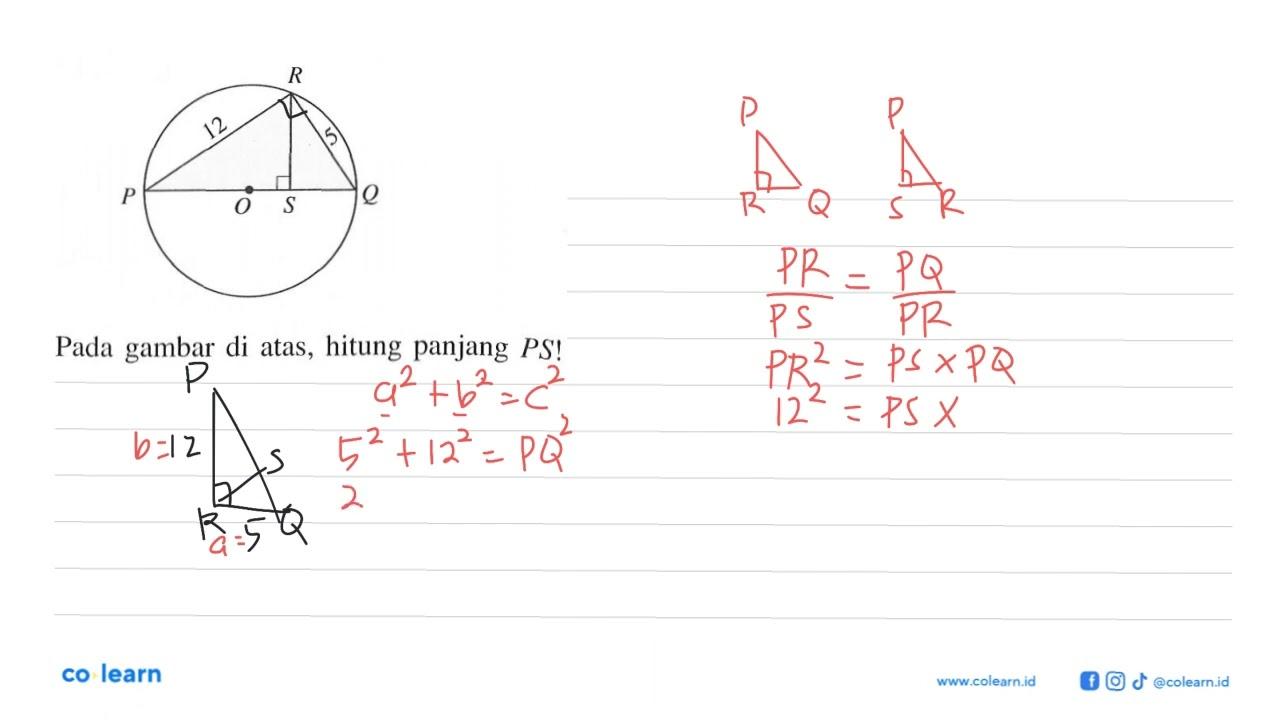 R
12
5
P
O
S
Q
Pada gambar di atas, hitung panjang PS!
P
b=12
S
R
Q
a=5
a² + b² = c²
5² + 12² = PQ²
2
P
R
Q
P
S
R
PR/PS = PQ/PR
PR² = PS × PQ
12² = PS ×
co learn
www.colearn.id
@colearn.id